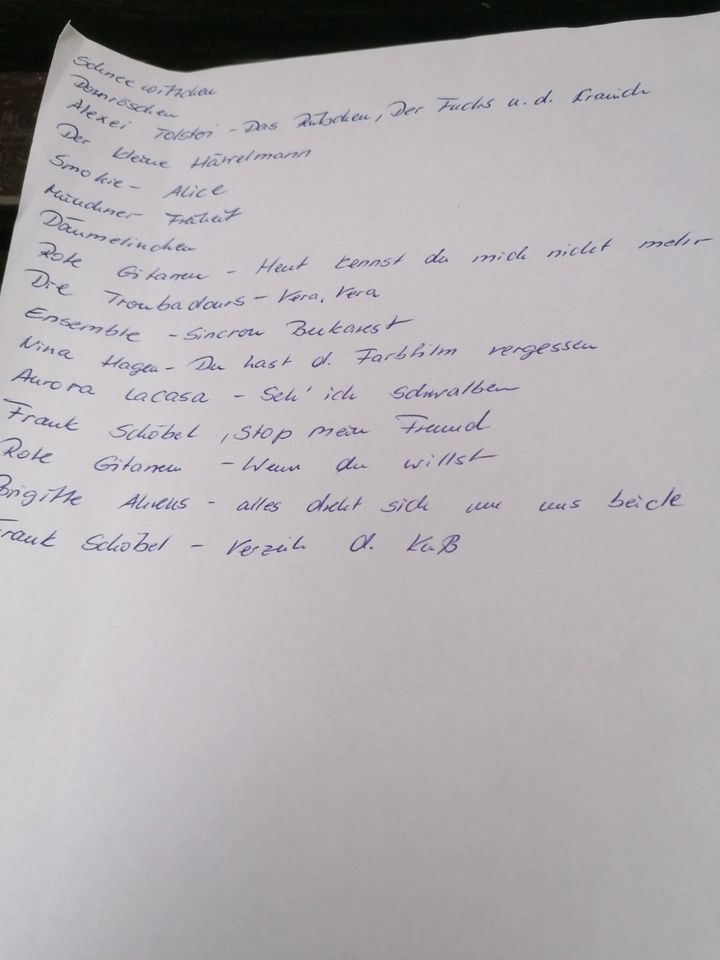 Schneewittchen
Dornröschen
Alexei Tolstoi - Das Rübchen, Der Fuchs u. d. Kranich
Der kleine Häwelmann
Smokie - Alice
Münchner Freiheit
Däumelinchen
Rote Gitarren - Heut kennst du mich nicht mehr
Die Troubadours - Vera, Vera
Ensemble - Sincron Bukarest
Nina Hagen - Du hast d. Farbfilm vergessen
Aurora Lacasa - Seh' ich Schwalben
Frank Schöbel, Stop mein Freund
Rote Gitarren - Wenn du willst
Brigitte Ahrens - alles dreht sich um uns beide
Frank Schöbel - Verzeih d. Kuß